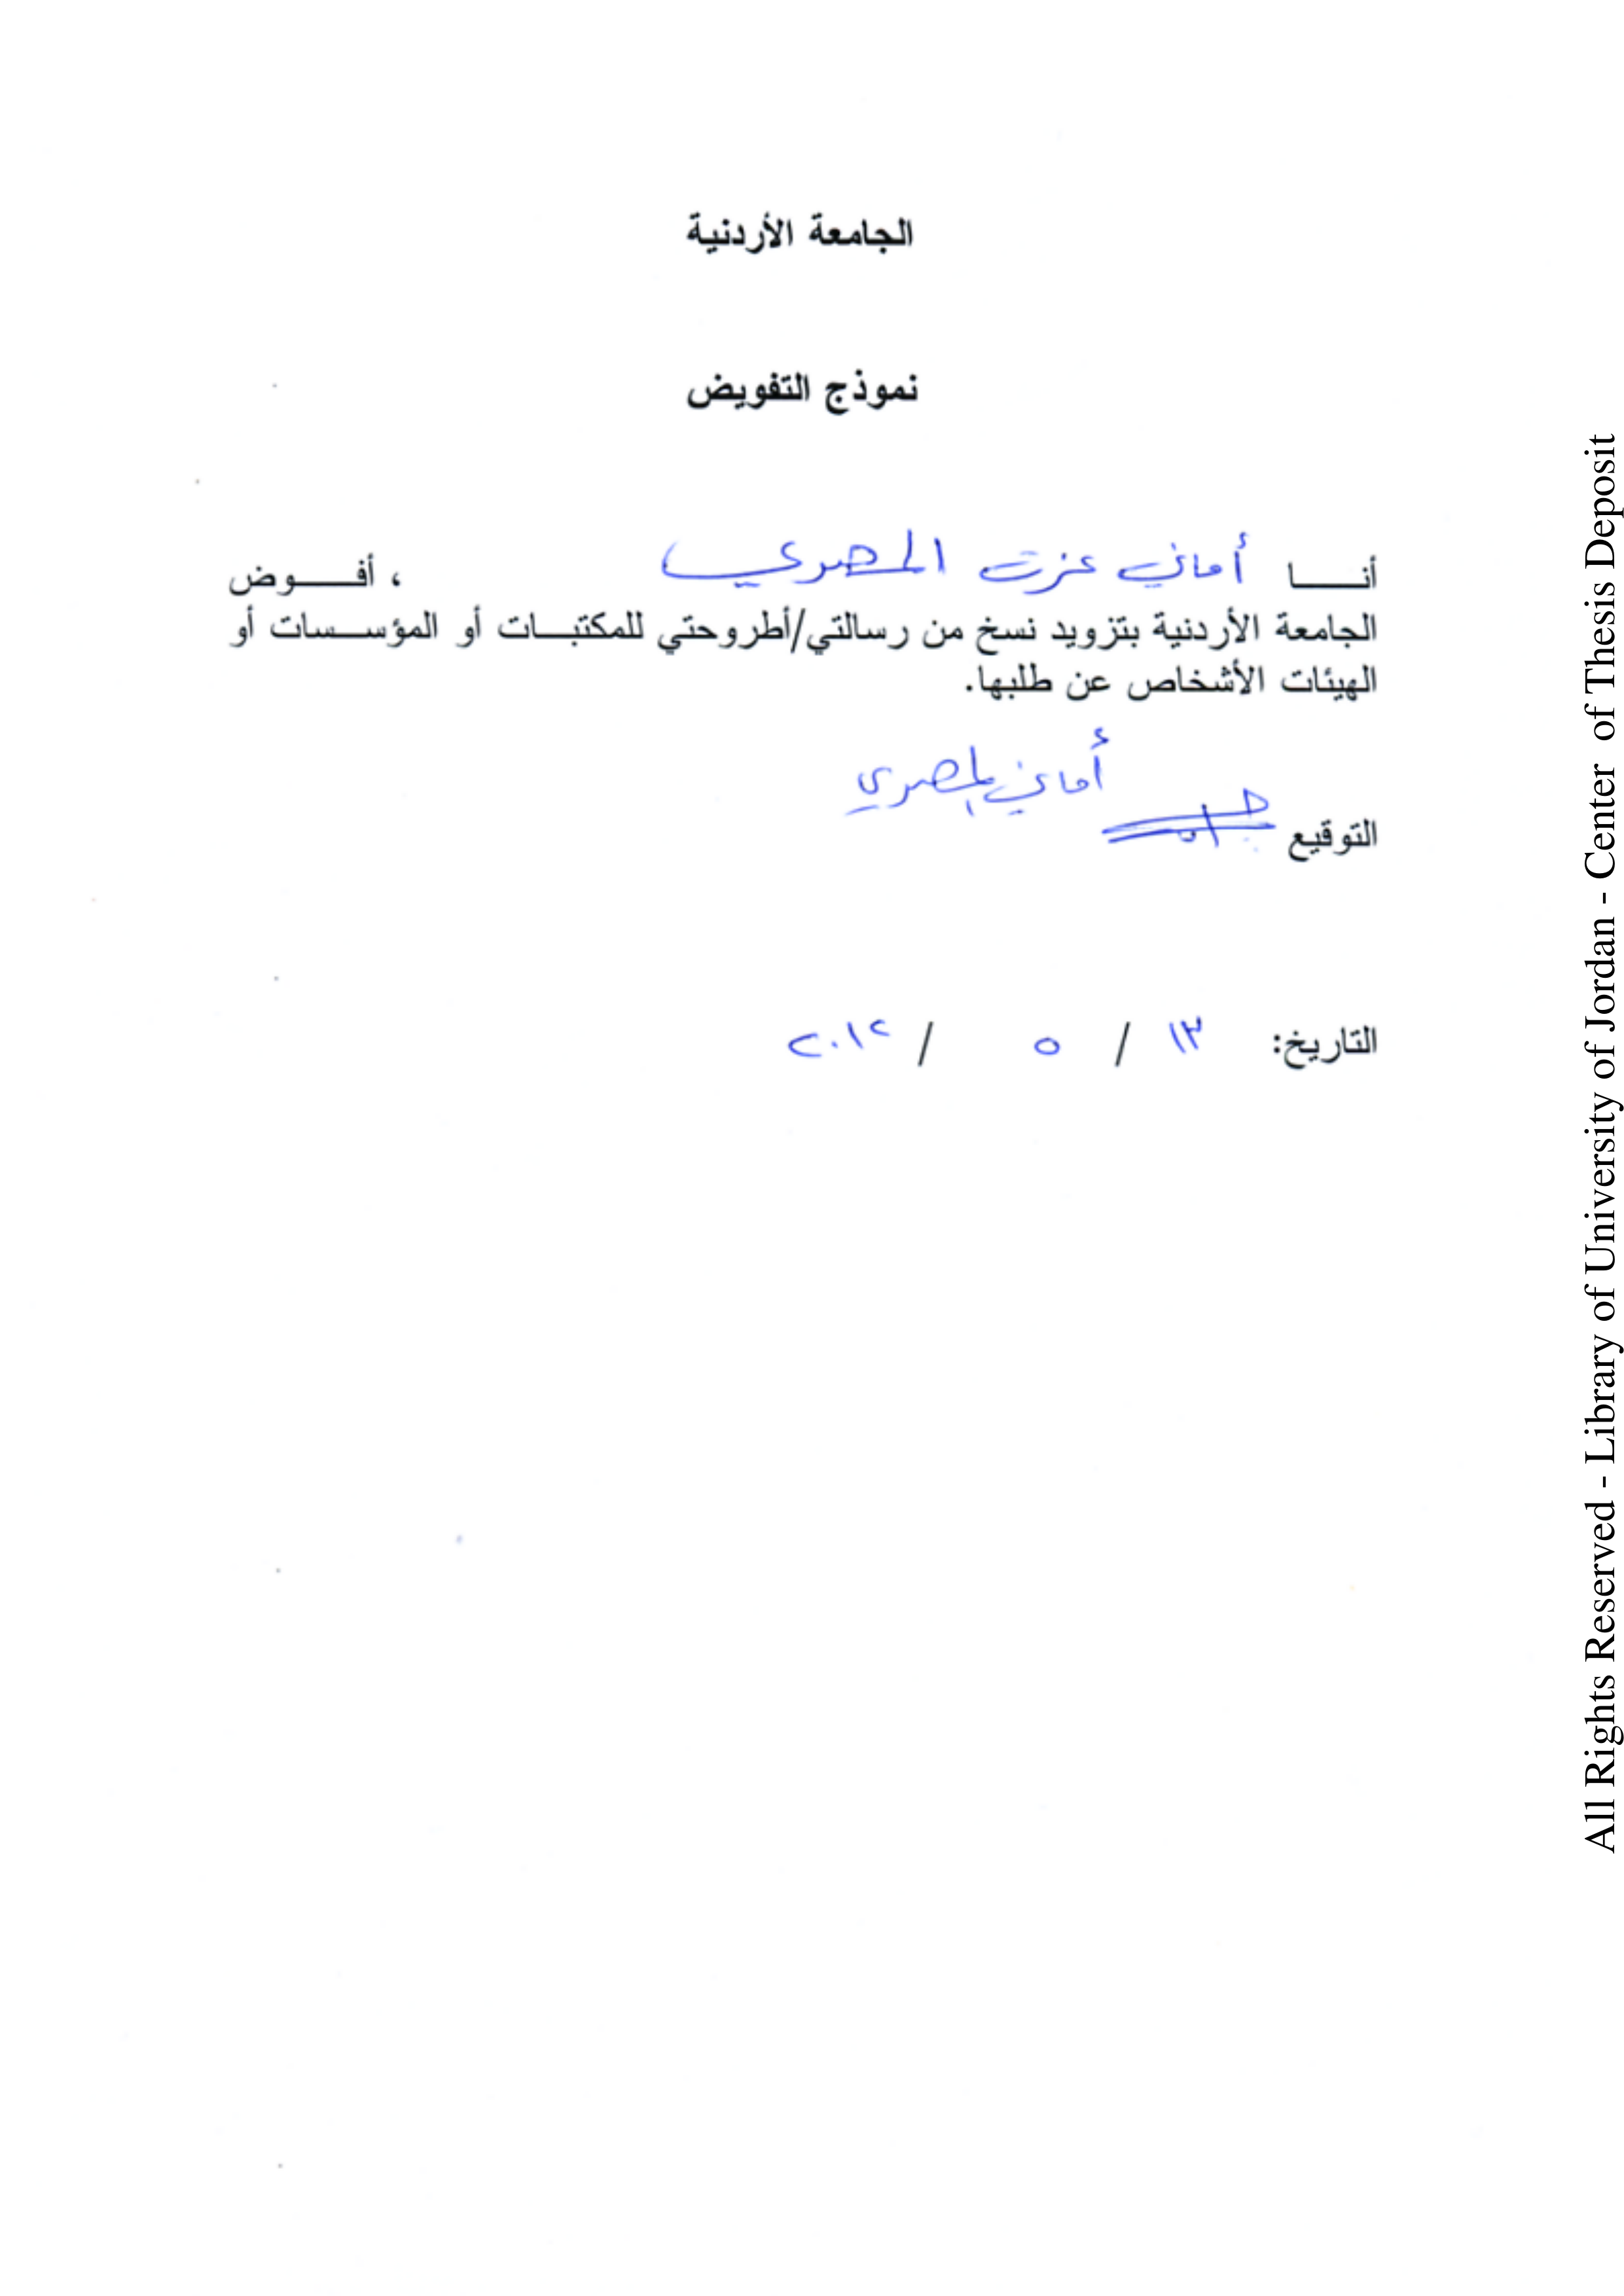 الجامعة الأردنية
نموذج التفويض
أنــــا أماني عزت المصري ، أفــــوض
الجامعة الأردنية بتزويد نسخ من رسالتي/أطروحتي للمكتبـــات أو المؤســـسات أو
الهيئات الأشخاص عن طلبها.
أماني المصري
التوقيع
التاريخ: ١٣ / ٥ / ٢٠١٢
All Rights Reserved - Library of University of Jordan - Center of Thesis Deposit